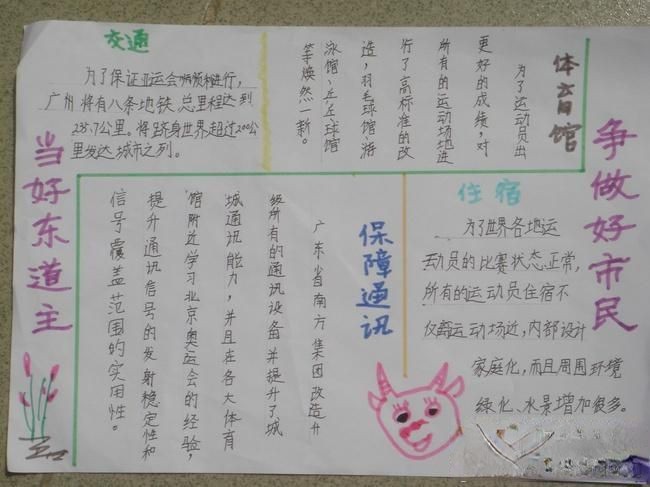 交通
为了保证亚运会顺利进行，
广州将有八条地铁总里程达到
235.7公里。将跻身世界超过200公
里发达城市之列。
体育馆
为了运动员出
更好的成绩，对
所有的运动场地进
行了高标准的改
造，羽毛球馆、游
泳馆、乒乓球馆
等焕然一新。
争做好市民
当好东道主
保障通讯
广东省南方集团改造升
级所有的通讯设备并提升了城
城通讯能力，并且在各大体育
馆附近学习北京奥运会的经验，
提升通讯信号的发射稳定性和
信号覆盖范围的实用性。
住宿
为了世界各地运
动员的比赛状态正常，
所有的运动员住宿不
仅离运动场近，内部设计
家庭化，而且周围环境
绿化、水景增加很多。